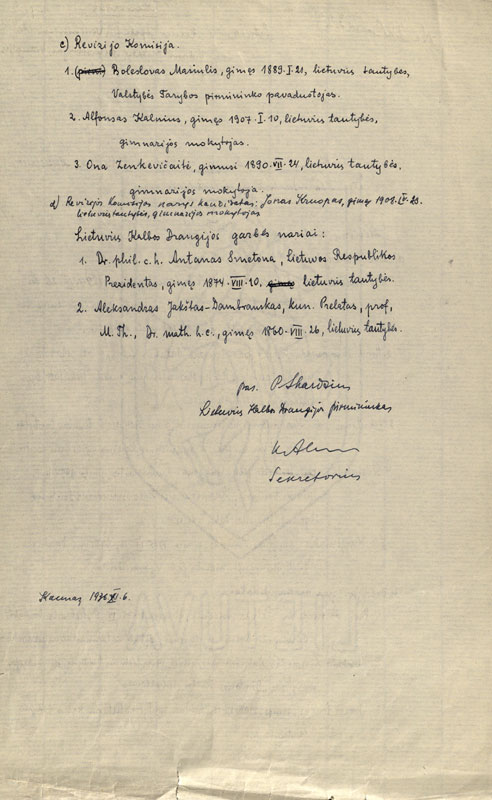 c) Revizijo Komisija.
1. (pirm.) Boleslovas Masiulis, gimęs 1889.I.21, lietuvis tautybės,
Valstybės Tarybos pirmininko pavaduotojas.
2. Alfonsas Kalnius, gimęs 1907.I.10, lietuvis tautybės,
gimnazijos mokytojas.
3. Ona Zenkevičaitė, gimusi 1890.VII.24, lietuvis tautybės,
gimnazijos mokytoja.
d) Revizijos komisijos narys kandidatas: Jonas Kruopas, gimęs 1908.IV.
lietuvis tautybės, gimnazijos mokytojas
Lietuvių Kalbos Draugijos garbės nariai:
1. Dr. phil. c. h. Antanas Smetona, Lietuvos Respublikos
Prezidentas, gimęs 1874.VIII.10. gimęs lietuvis tautybės.
2. Aleksandras Jakštas-Dambrauskas, kun. Prelatas, prof.,
M. Th., Dr. math. h.c., gimęs 1860.VIII.26, lietuvis tautybės.
pas. P. Skardžius
Lietuvių Kalbos Draugijos pirmininkas
Sekretorius
Kaunas, 1936.XI.6.